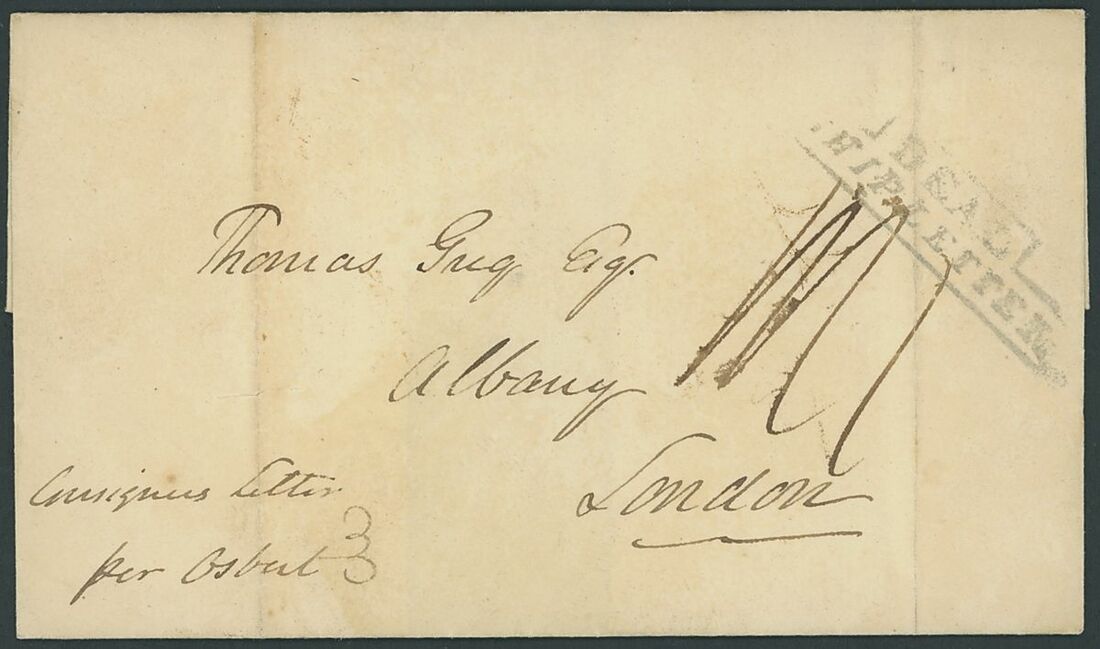 DEAL
SHIP LETTER
Thomas Greg Esqr.
Albany
London
Consignees Letter
per Osbert